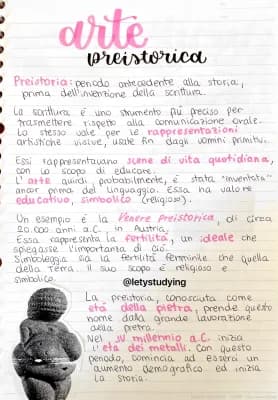 arte
preistorica
Preistoria: periodo antecedente alla storia,
prima dell'invenzione della scrittura.
La scrittura è uno strumento più preciso per
trasmettere rispetto alla comunicazione orale.
Lo stesso vale per le rappresentazioni
artistiche visive, usate fin dagli uomini primitivi.
Essi rappresentavano scene di vita quotidiana,
con lo scopo di educare.
L'arte quindi, probabilmente, è stata "inventata"
ancor prima del linguaggio. Essa ha valore
educativo, simbolico (religioso).
Un esempio è la Venere Preistorica, di circa
20.000 anni a.C., in Austria.
Essa rappresenta la fertilità, un ideale che
spiegasse l'importanza di ciò.
Simboleggia sia la fertilità femminile che quella
della Terra. Il suo scopo è religioso e
simbolico.
@letystudying
La preistoria, conosciuta come
età della pietra, prende questo
nome dalla grande lavorazione
della pietra.
Nel millennio a.C. inizia
l'età dei metalli. Con questo
periodo, comincia ad esserci un
aumento demografico ed inizia
la Storia.